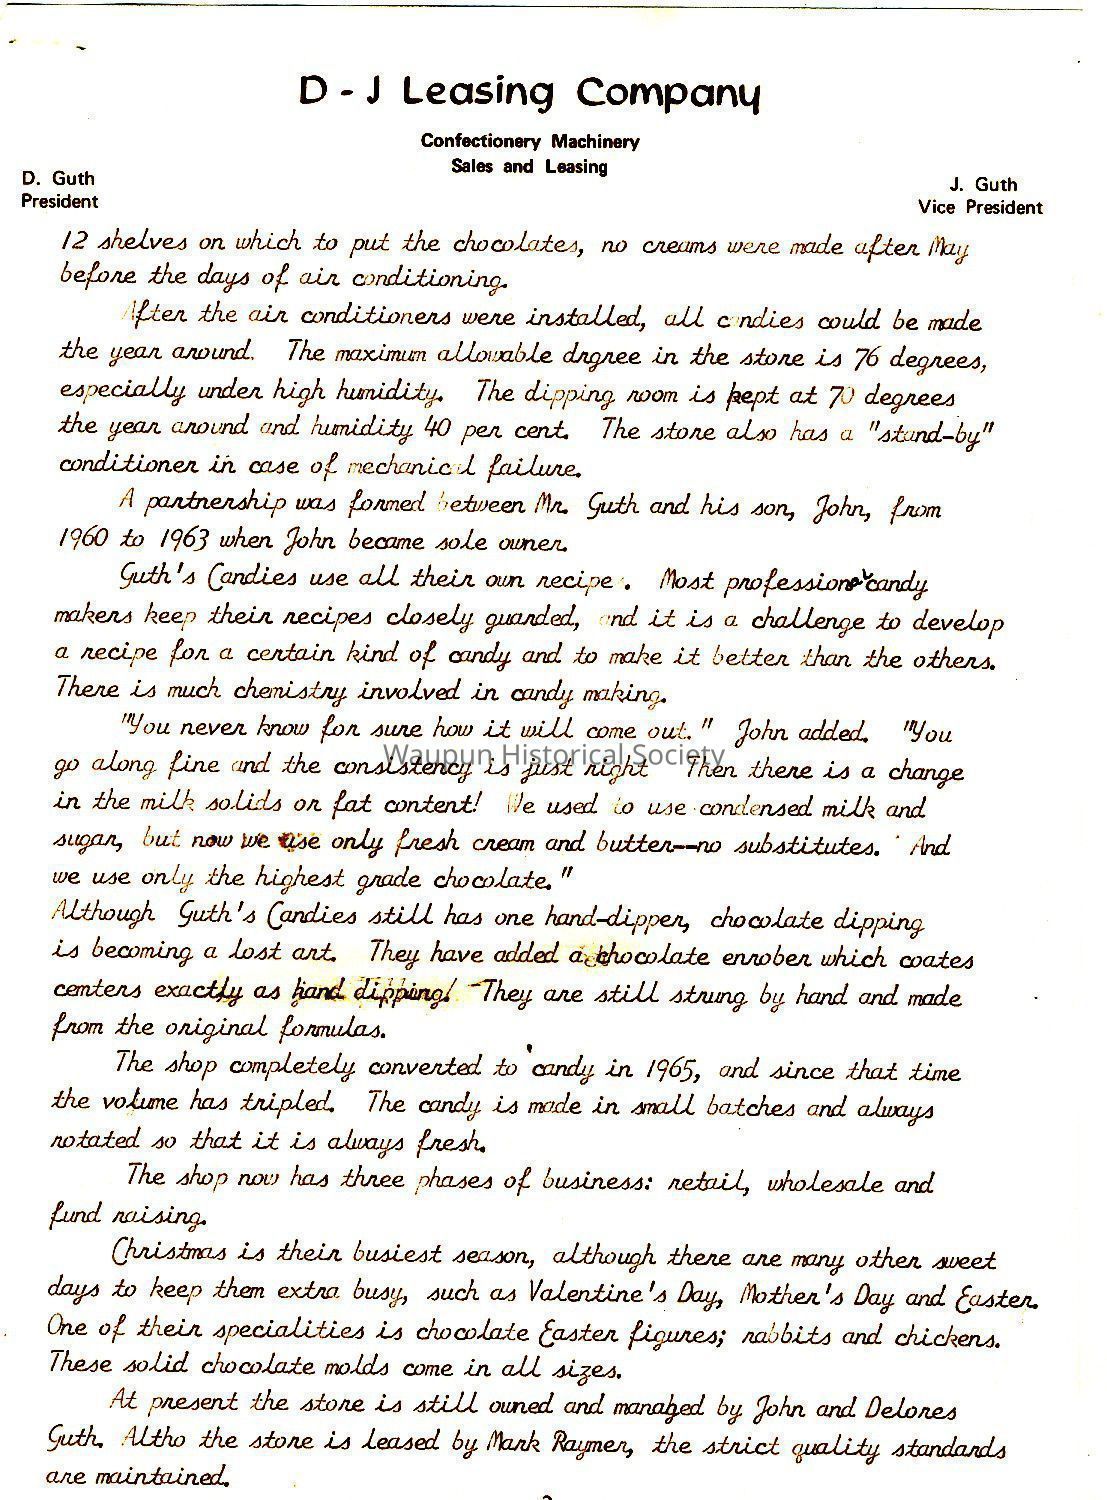 D - J Leasing Company
Confectionery Machinery
Sales and Leasing
D. Guth
President
J. Guth
Vice President
12 shelves on which to put the chocolates, no creams were made after May
before the days of air conditioning.
After the air conditioners were installed, all candies could be made
the year around. The maximum allowable drgree in the store is 76 degrees,
especially under high humidity. The dipping room is kept at 70 degrees
the year around and humidity 40 per cent. The store also has a "stand-by"
conditioner in case of mechanical failure.
A partnership was formed between Mr. Guth and his son, John, from
1960 to 1963 when John became sole owner.
Guth's Candies use all their own recipe . Most professional candy
makers keep their recipes closely guarded, and it is a challenge to develop
a recipe for a certain kind of candy and to make it better than the others.
There is much chemistry involved in candy making.
"You never know for sure how it will come out." John added. "You
Waupun Historical Society
go along fine and the consistency is just right Then there is a change
in the milk solids or fat content! We used to use condensed milk and
sugar, but now we use only fresh cream and butter--no substitutes. And
we use only the highest grade chocolate."
Although Guth's Candies still has one hand-dipper, chocolate dipping
is becoming a lost art. They have added a chocolate enrober which coates
cemters exactly as hand dipping! They are still strung by hand and made
from the original formulas.
The shop completely converted to candy in 1965, and since that time
the volume has tripled. The candy is made in small batches and always
rotated so that it is always fresh.
The shop now has three phases of business: retail, wholesale and
fund raising.
Christmas is their busiest season, although there are many other sweet
days to keep them extra busy, such as Valentine's Day, Mother's Day and Easter.
One of their specialities is chocolate Easter figures; rabbits and chickens.
These solid chocolate molds come in all sizes.
At present the store is still owned and managed by John and Delores
Guth. Altho the store is leased by Mark Raymer, the strict quality standards
are maintained.